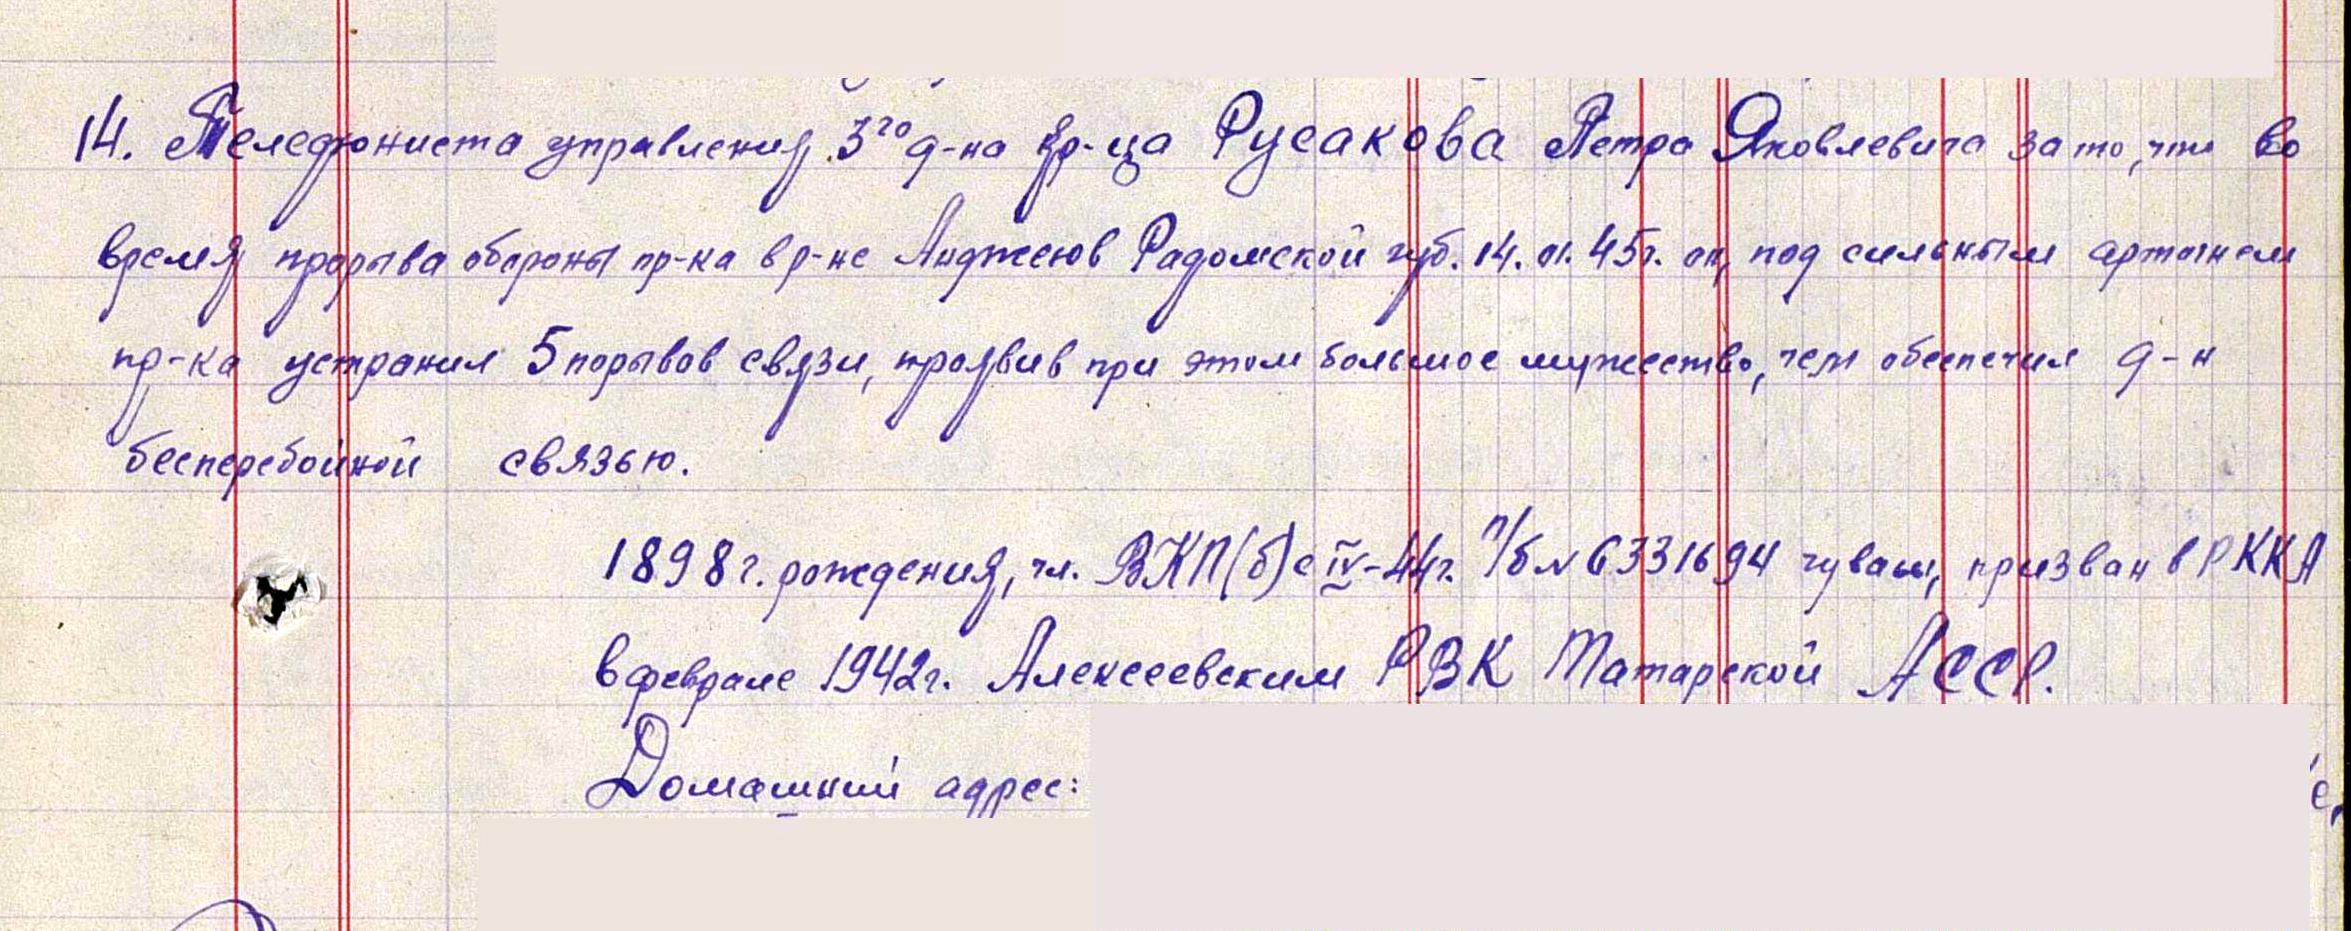 14. Телефониста управления 3го д-на кр-ца Русакова Петра Яковлевича за то, что во
время прорыва обороны пр-ка в р-не Анджеюв Радомской губ. 14.01.45г. он, под сильным артогнем
пр-ка устранил 5 порывов связи, проявив при этом большое мужество, чем обеспечил д-н
бесперебойной связью.
1898г. рождения, чл. ВКП(б) с IV-44г. п/б № 6331694 чуваш, призван в РККА
в феврале 1942г. Алексеевским РВК Татарской АССР.
Домашний адрес: